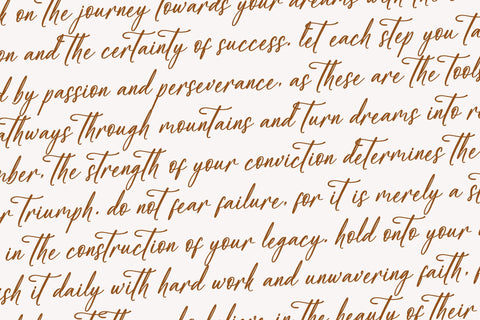 on the journey towards your dreams with the
on and the certainty of success. let each step you ta
d by passion and perseverance, as these are the tools
athways through mountains and turn dreams into r
mber, the strength of your conviction determines the
r triumph. do not fear failure, for it is merely a st
in the construction of your legacy. hold onto your
sh it daily with hard work and unwavering faith, f
believe in the beauty of their